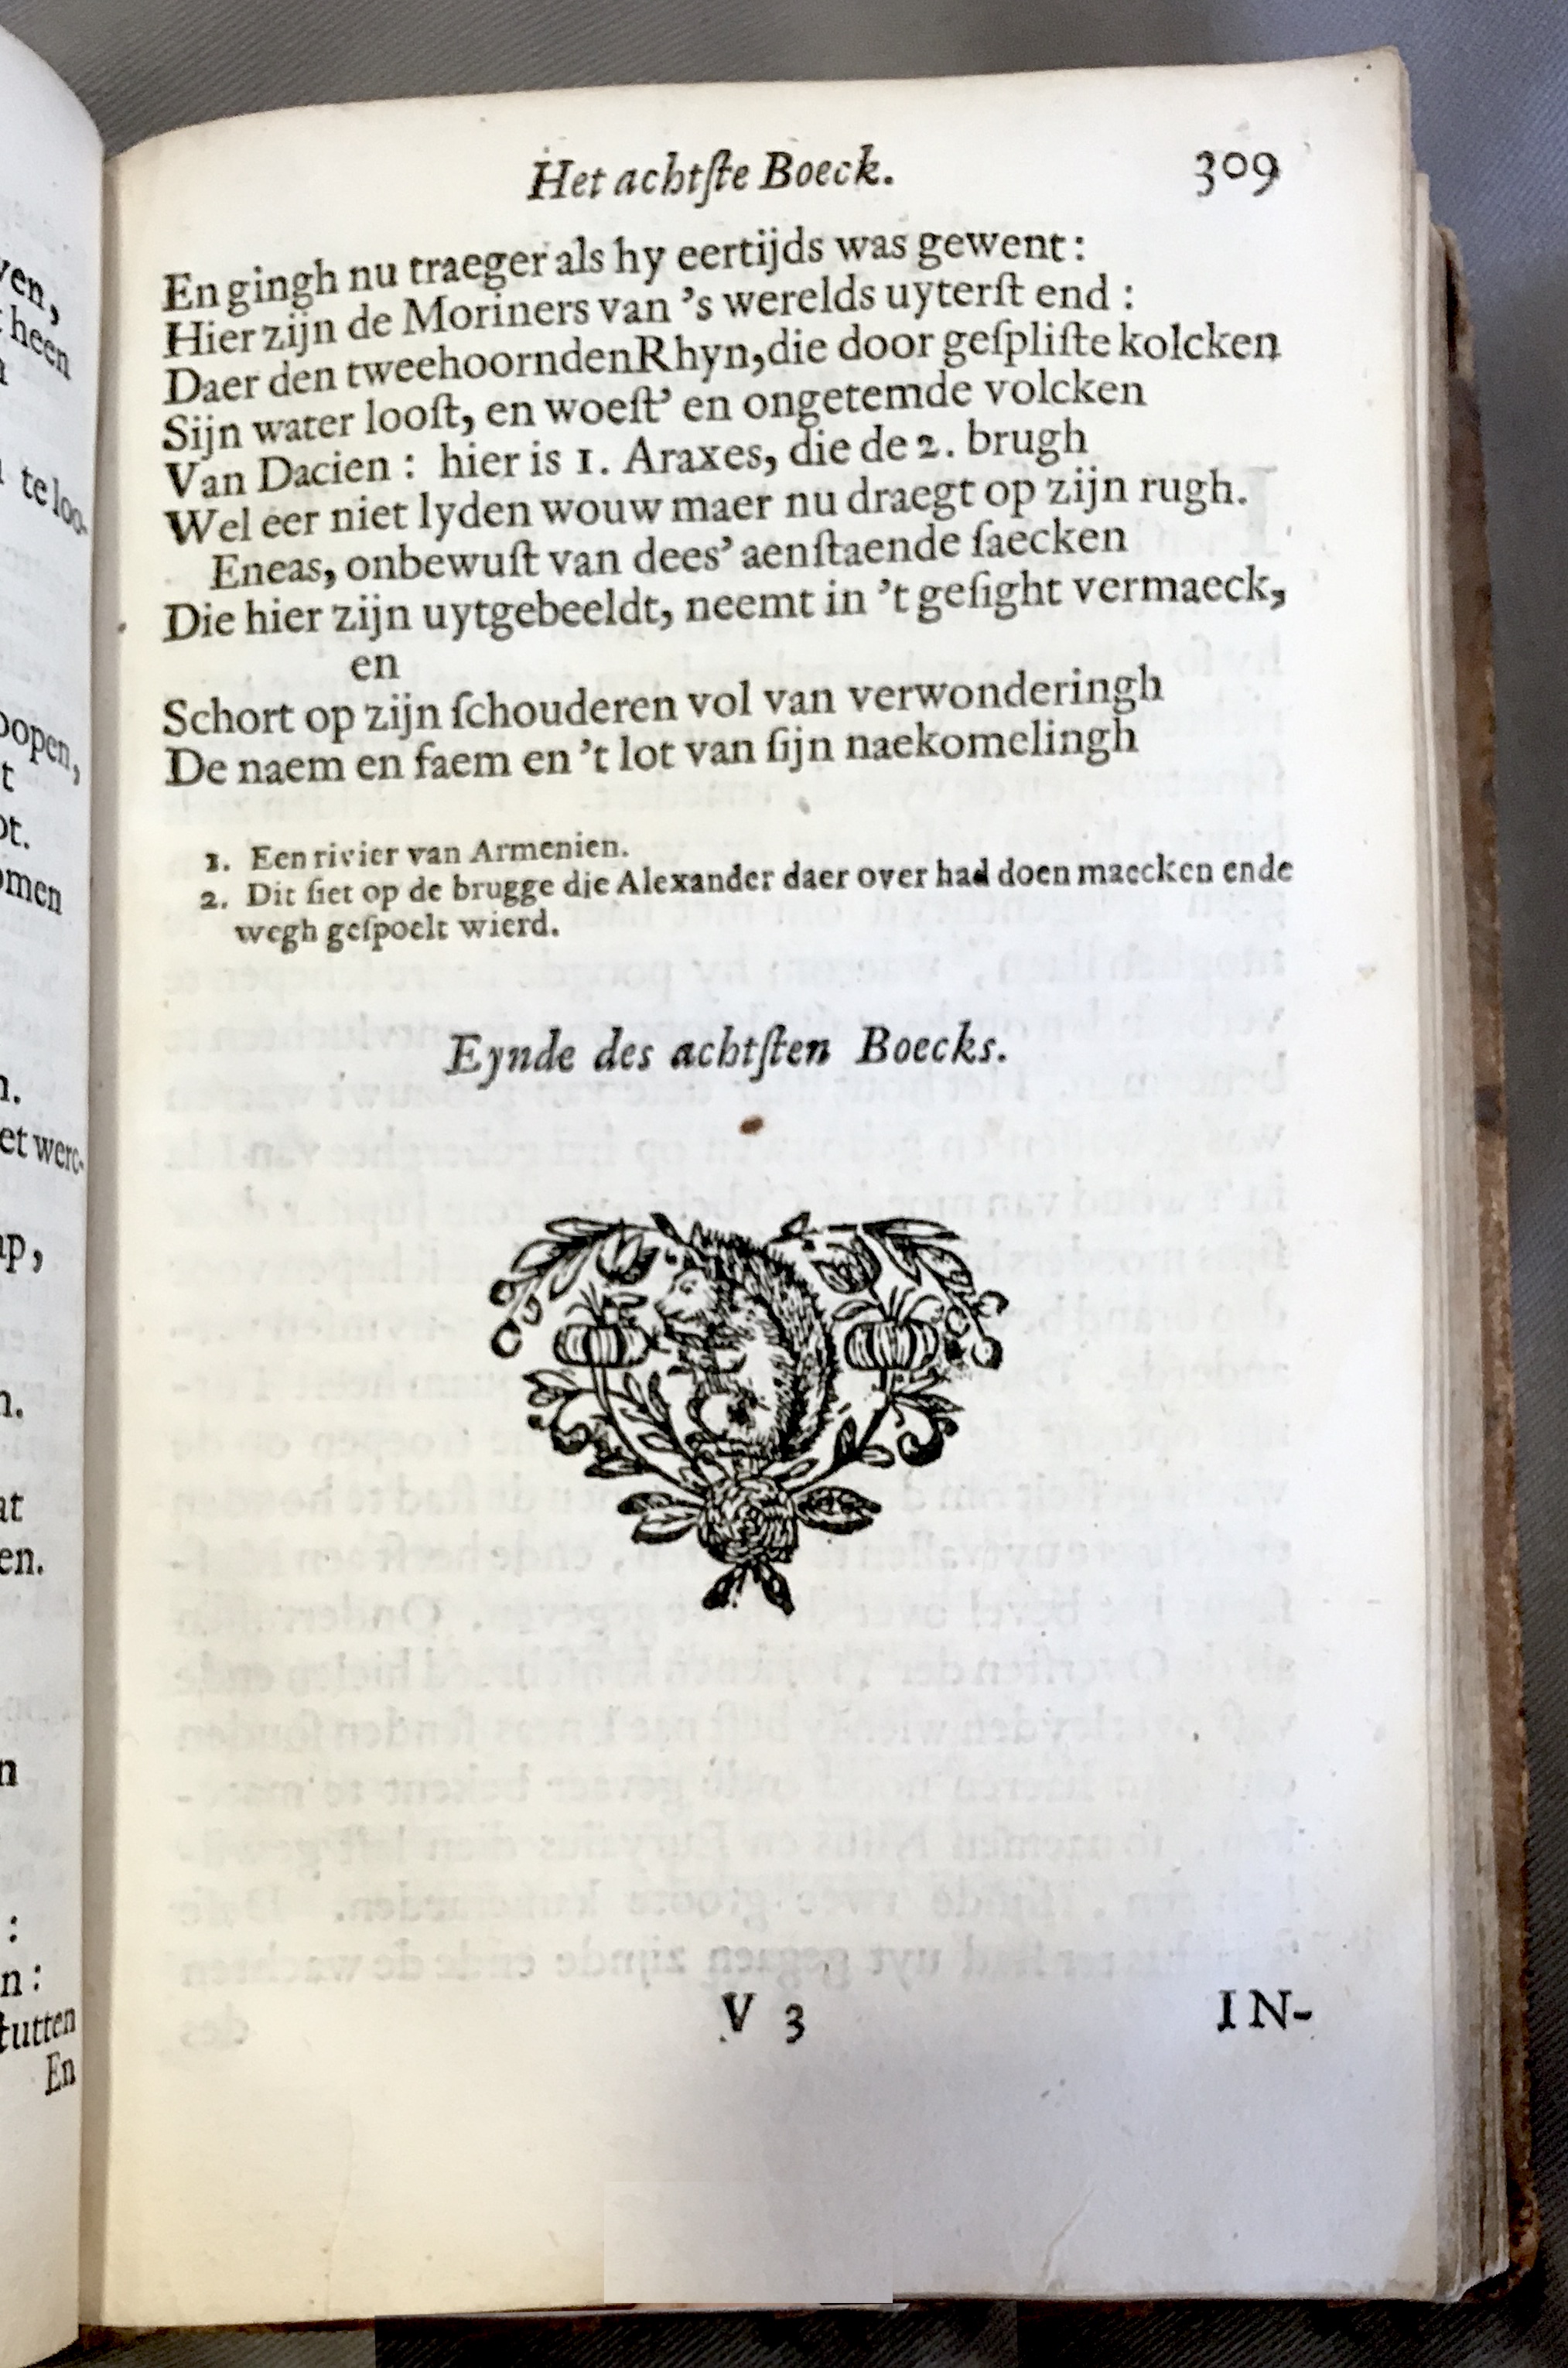 Het achtſte Boeck. 309
En gingh nu traeger als hy eertijds was gewent :
Hier zijn de Moriners van 's werelds uyterſt end :
Daer den tweehoornden Rhyn, die door geſpliſte kolcken
Sijn water looſt, en woeſt' en ongetemde volcken
Van Dacien : hier is 1. Araxes, die de 2. brugh
Wel eer niet lyden wouw maer nu draegt op zijn rugh.
Eneas, onbewuſt van dees' aenſtaende ſaecken
Die hier zijn uytgebeeldt, neemt in 't geſight vermaeck,
en
Schort op zijn ſchouderen vol van verwonderingh
De naem en faem en 't lot van ſijn naekomelingh
1. Een rivier van Armenien.
2. Dit ſiet op de brugge die Alexander daer over had doen maecken ende
wegh geſpoelt wierd.
Eynde des achtſten Boecks.
V 3 IN-